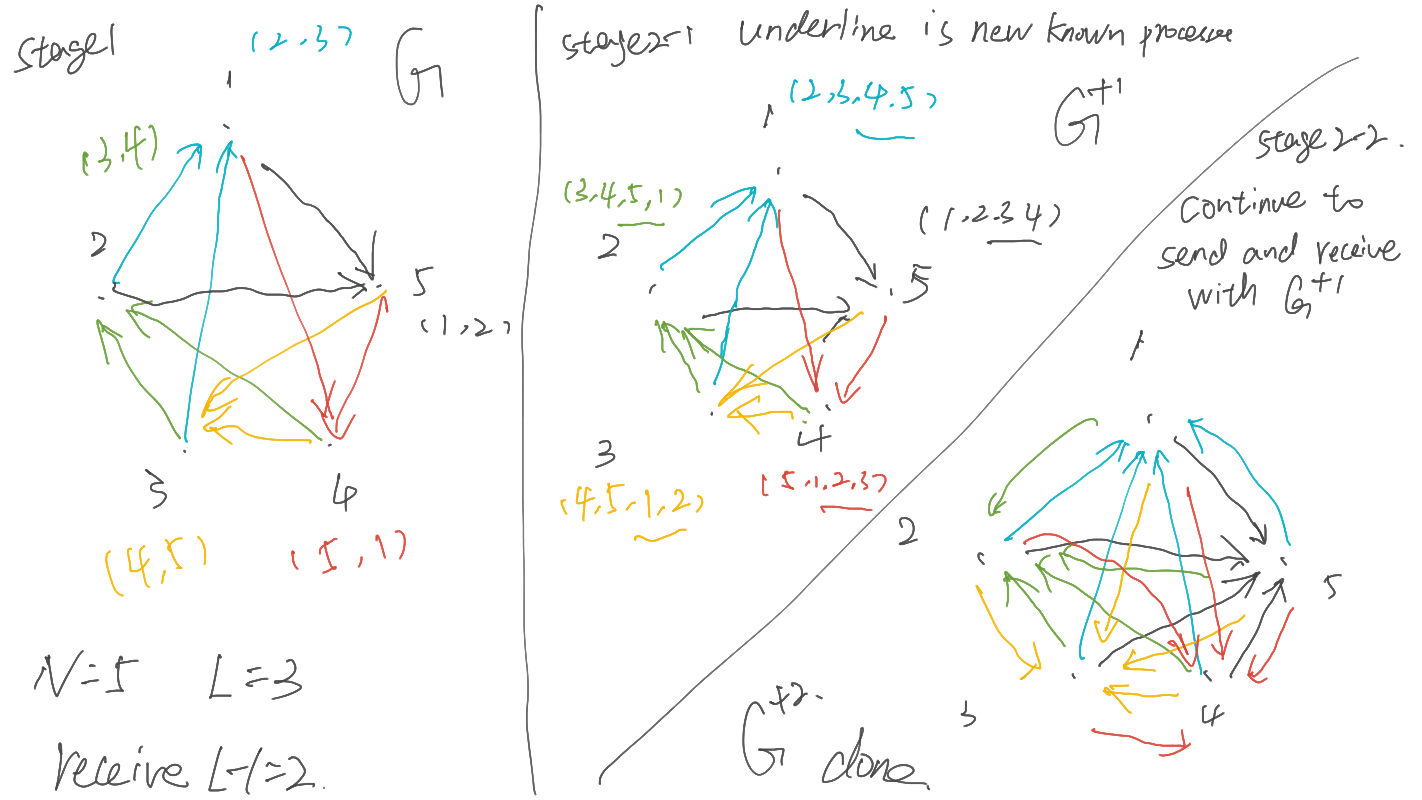 stage1
(2,3)
G
1
(3,4)
2
5
(1,2)
3
4
(4,5)
(5,1)
N=5 L=3
receive L-1=2.
stage2-1 underline is new known processe
(2,3,4.5)
G+1
1
(3,4,5,1)
2
(1,2.3 4)
5
3
4
(4,5,1,2)
(5,1,2,3)
stage2-2.
Continue to
send and receive
with G+1
1
2
5
3
4
G+2.
done